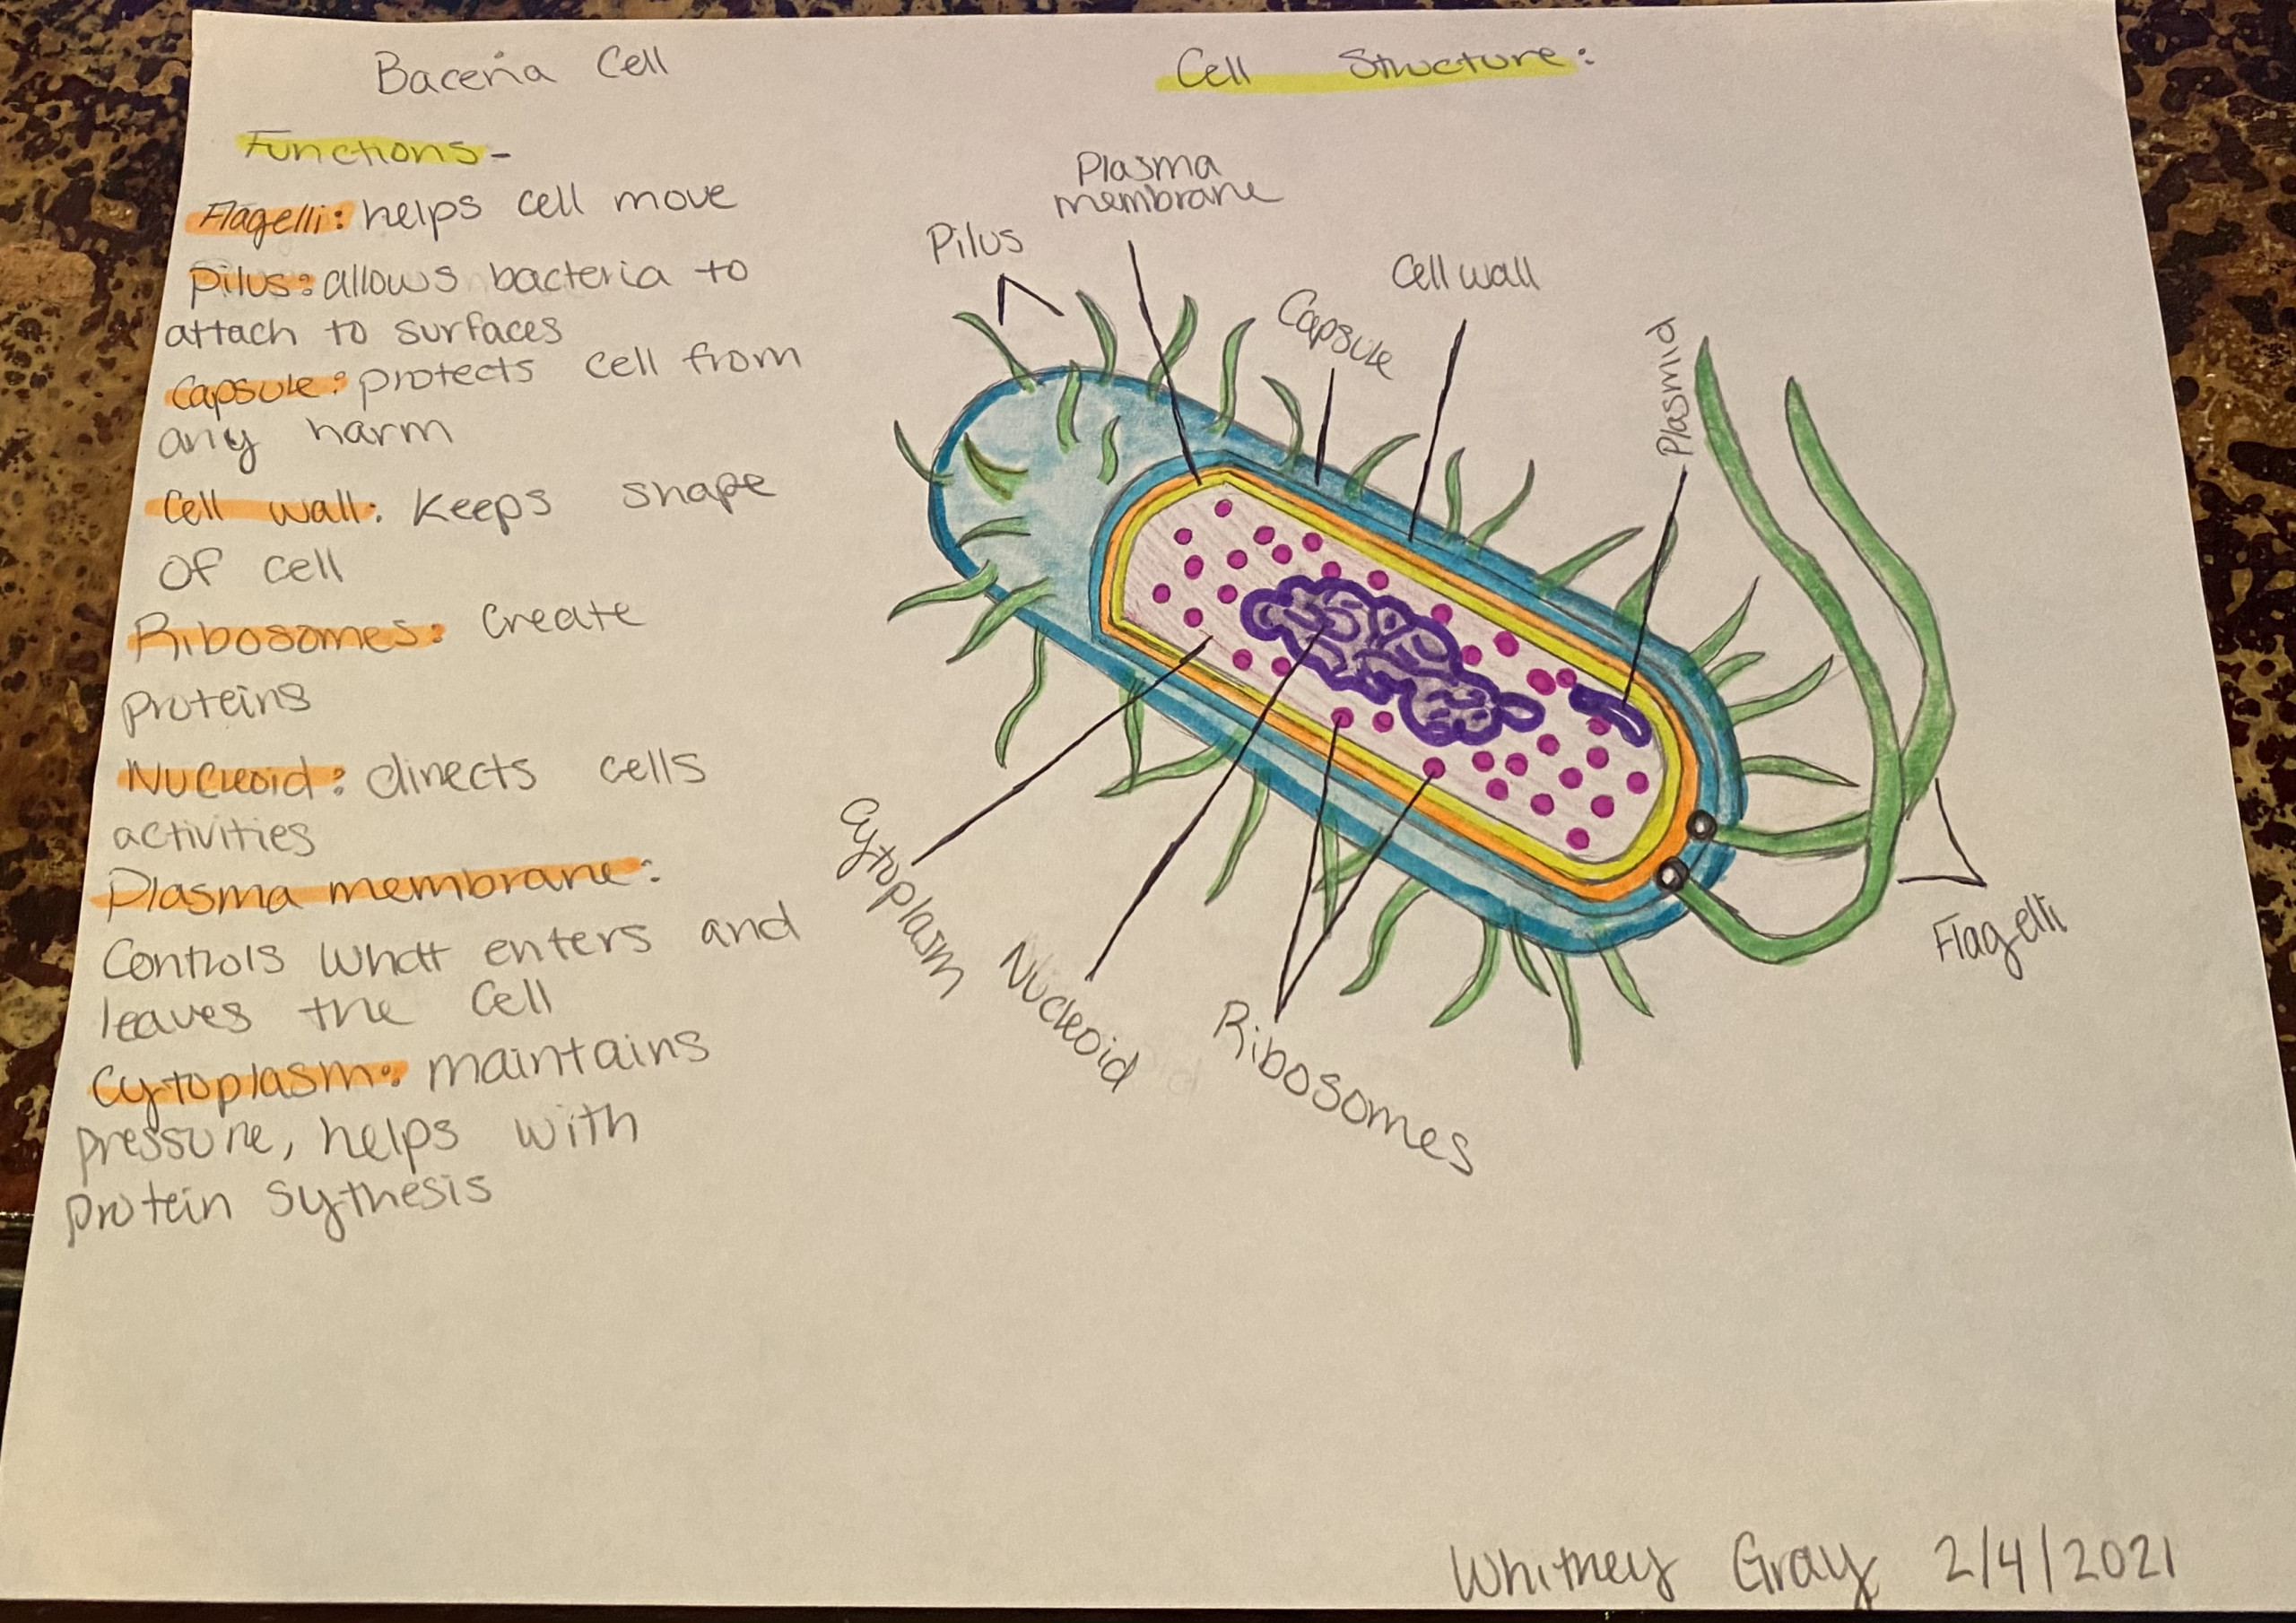 Baceria Cell
Functions-
Flagelli: helps cell move
Pilus: allows bacteria to
attach to surfaces
Capsule: protects cell from
any harm
Cell wall: Keeps shape
of cell
Ribosomes: Create
proteins
Nucleoid: directs cells
activities
Plasma membrane:
Controls what enters and
leaves the cell
Cytoplasm: maintains
pressure, helps with
protein sythesis
Cell Structure:
Plasma
membrane
Pilus
Cell wall
Capsule
Plasmid
Cytoplasm
Nucleoid
Ribosomes
Flagelli
Whitney Gray 2/4/2021